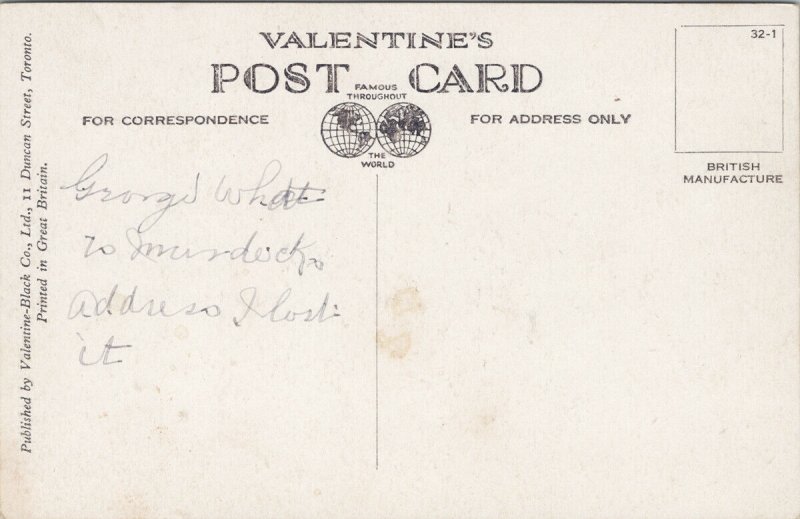 VALENTINE'S
POST CARD
FAMOUS
THROUGHOUT
THE
WORLD
FOR CORRESPONDENCE
FOR ADDRESS ONLY
32-1
BRITISH
MANUFACTURE
Published by Valentine-Black Co., Ltd., 11 Duncan Street, Toronto.
Printed in Great Britain.
George What
is Murdocks
address I lost
it